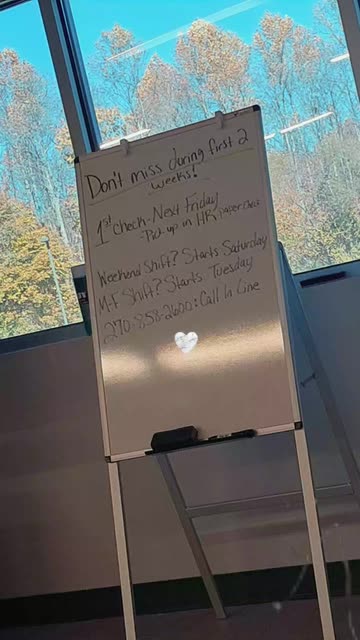 Don't miss during first 2
weeks!
1st Check - Next Friday
- Pick-up in HR, paper check
Weekend Shift? Starts Saturday
M-F Shift? Starts Tuesday
270-858-2600: Call In Line